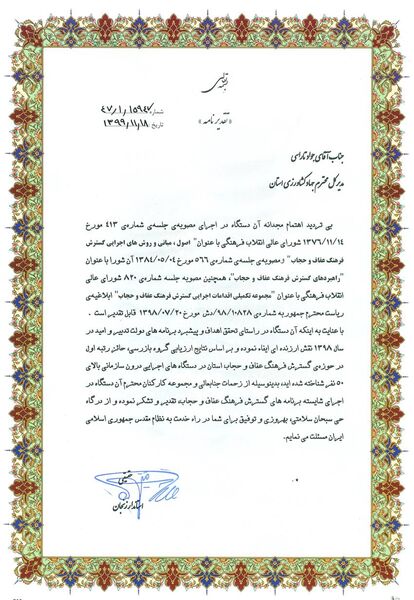 بسمه تعالی
شماره: ۴۷/۱/۱۵۹۴۷
«تقدیر نامه»
تاریخ: ۱۳۹۹/۱۱/۱۸
جناب آقای
مدیر کل محترم جهاد کشاورزی استان
بی تردید اهتمام مجدانه آن دستگاه در اجرای مصوبه‌ی جلسه‌ی شماره‌ی ۴۱۳ مورخ
۱۳۷۶/۱۱/۱۴ شورای عالی انقلاب فرهنگی با عنوان" اصول، مبانی و روش های اجرایی گسترش
فرهنگ عفاف و حجاب" ومصوبه‌ی جلسه‌ی شماره‌ی ۵۶۶ مورخ ۱۳۸۴/۰۵/۰۴ آن شورا با عنوان
"راهبردهای گسترش فرهنگ عفاف و حجاب"، همچنین مصوبه جلسه شماره‌ی ۸۲۰ شورای عالی
انقلاب فرهنگی با عنوان "مجموعه تکمیلی اقدامات اجرایی گسترش فرهنگ عفاف و حجاب" ابلاغیه‌ی
ریاست محترم جمهور به شماره‌ی ۹۸/۱۰۸۲۸/دش مورخ ۱۳۹۸/۰۷/۲۰ قابل تقدیر است .
با عنایت به اینکه آن دستگاه در راستای تحقق اهداف و پیشبرد برنامه های دولت تدبیر و امید در
سال ۱۳۹۸ نقش ارزنده ای ایفاء نموده و بر اساس نتایج ارزیابی گروه بازرسی، حائز رتبه اول
در حوزه‌ی گسترش فرهنگ عفاف و حجاب استان در دستگاه های اجرایی درون سازمانی بالای
۵۰ نفر شناخته شده اید، بدینوسیله از زحمات جنابعالی و مجموعه کارکنان محترم آن دستگاه در
اجرای شایسته برنامه های گسترش فرهنگ عفاف و حجاب، تقدیر و تشکر نموده و از درگاه
حی سبحان سلامتی، بهروزی و توفیق برای شما در راه خدمت به نظام مقدس جمهوری اسلامی
ایران مسئلت می نمایم.
حقیقی
استاندار زنجان